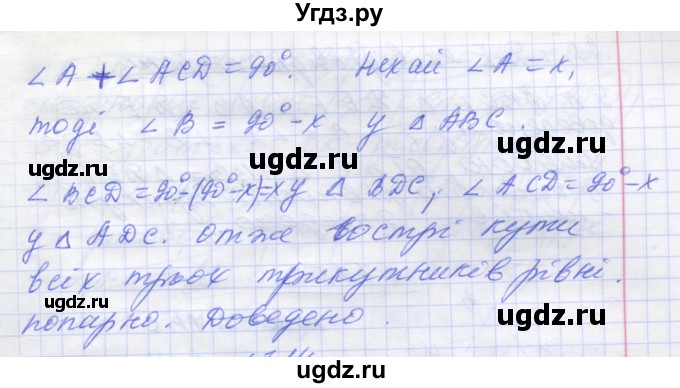 Угдз.ру
∠A + ∠ACD = 90°. Нехай ∠A = x,
тоді ∠B = 90° - x у △ABC.
∠BCD = 90° - (90° - x) = x у △BDC, ∠ACD = 90° - x
у △ADC. Отже гострі кути
всіх трьох трикутників рівні.
попарно. Доведено.
ugdz.ru
ugdz.ru
ugdz.ru
ugdz.ru
ugdz.ru
ugdz.ru
ugdz.ru
ugdz.ru